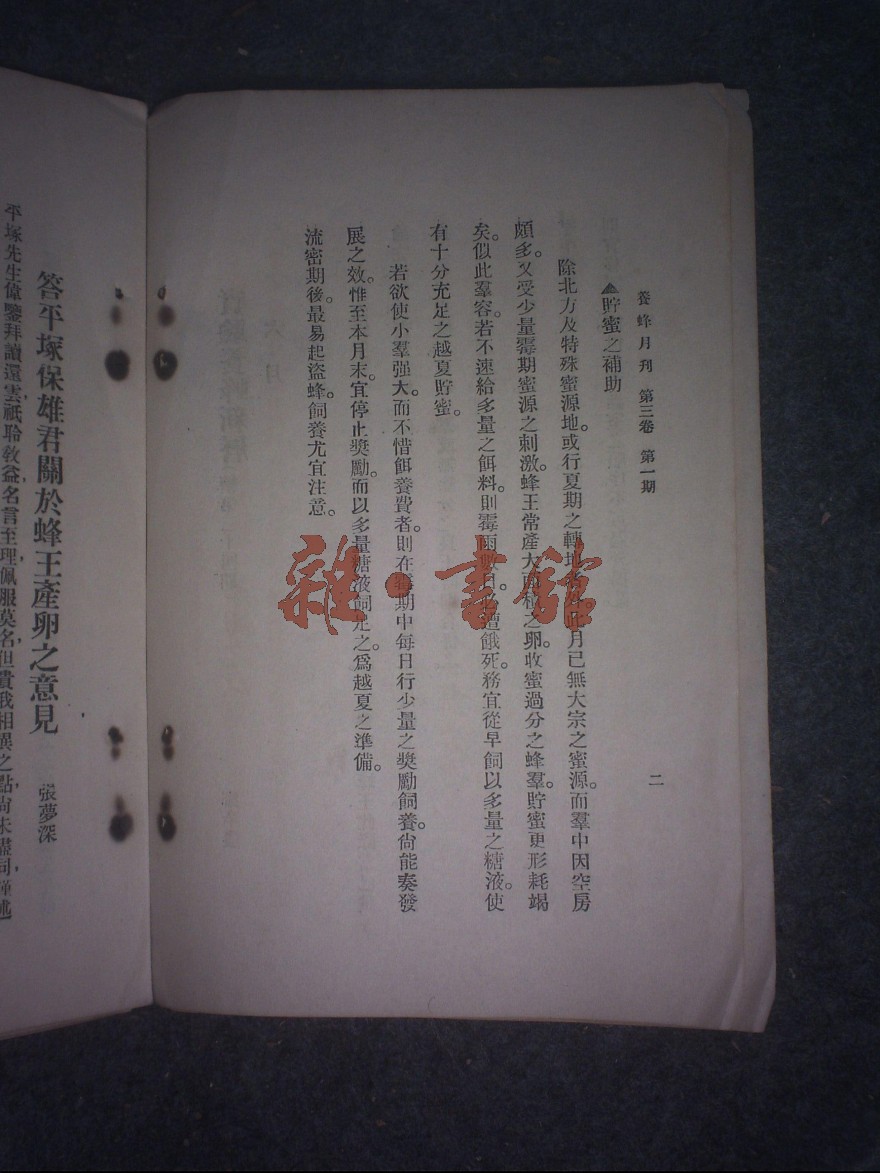 養蜂月刊 第三卷 第一期
二
▲貯蜜之補助
除北方及特殊蜜源地。或行夏期之轉地 月已無大宗之蜜源。而羣中因空房
頗多。又受少量霉期蜜源之刺激。蜂王常產大 之卵。收蜜過分之蜂羣。貯蜜更形耗竭
矣。似此羣容。若不速給多量之餌料。則霉雨 日。 遭餓死。務宜從早飼以多量之糖液。使
有十分充足之越夏貯蜜。
若欲使小羣强大。而不惜餌養費者。則在霉期中每日行少量之獎勵飼養。尙能奏發
展之效。惟至本月末宜停止獎勵。而以多量糖液飼足之。爲越夏之準備。
流密期後。最易起盜蜂。飼養尤宜注意。
雜·書館
答平塚保雄君關於蜂王產卵之意見
張夢深
平塚先生偉鑒拜讀還雲祇聆敎益名言至理佩服莫名但貴我相異之點尙未盡同